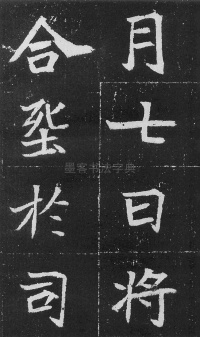 月七日將
合塟於司
墨客书法字典